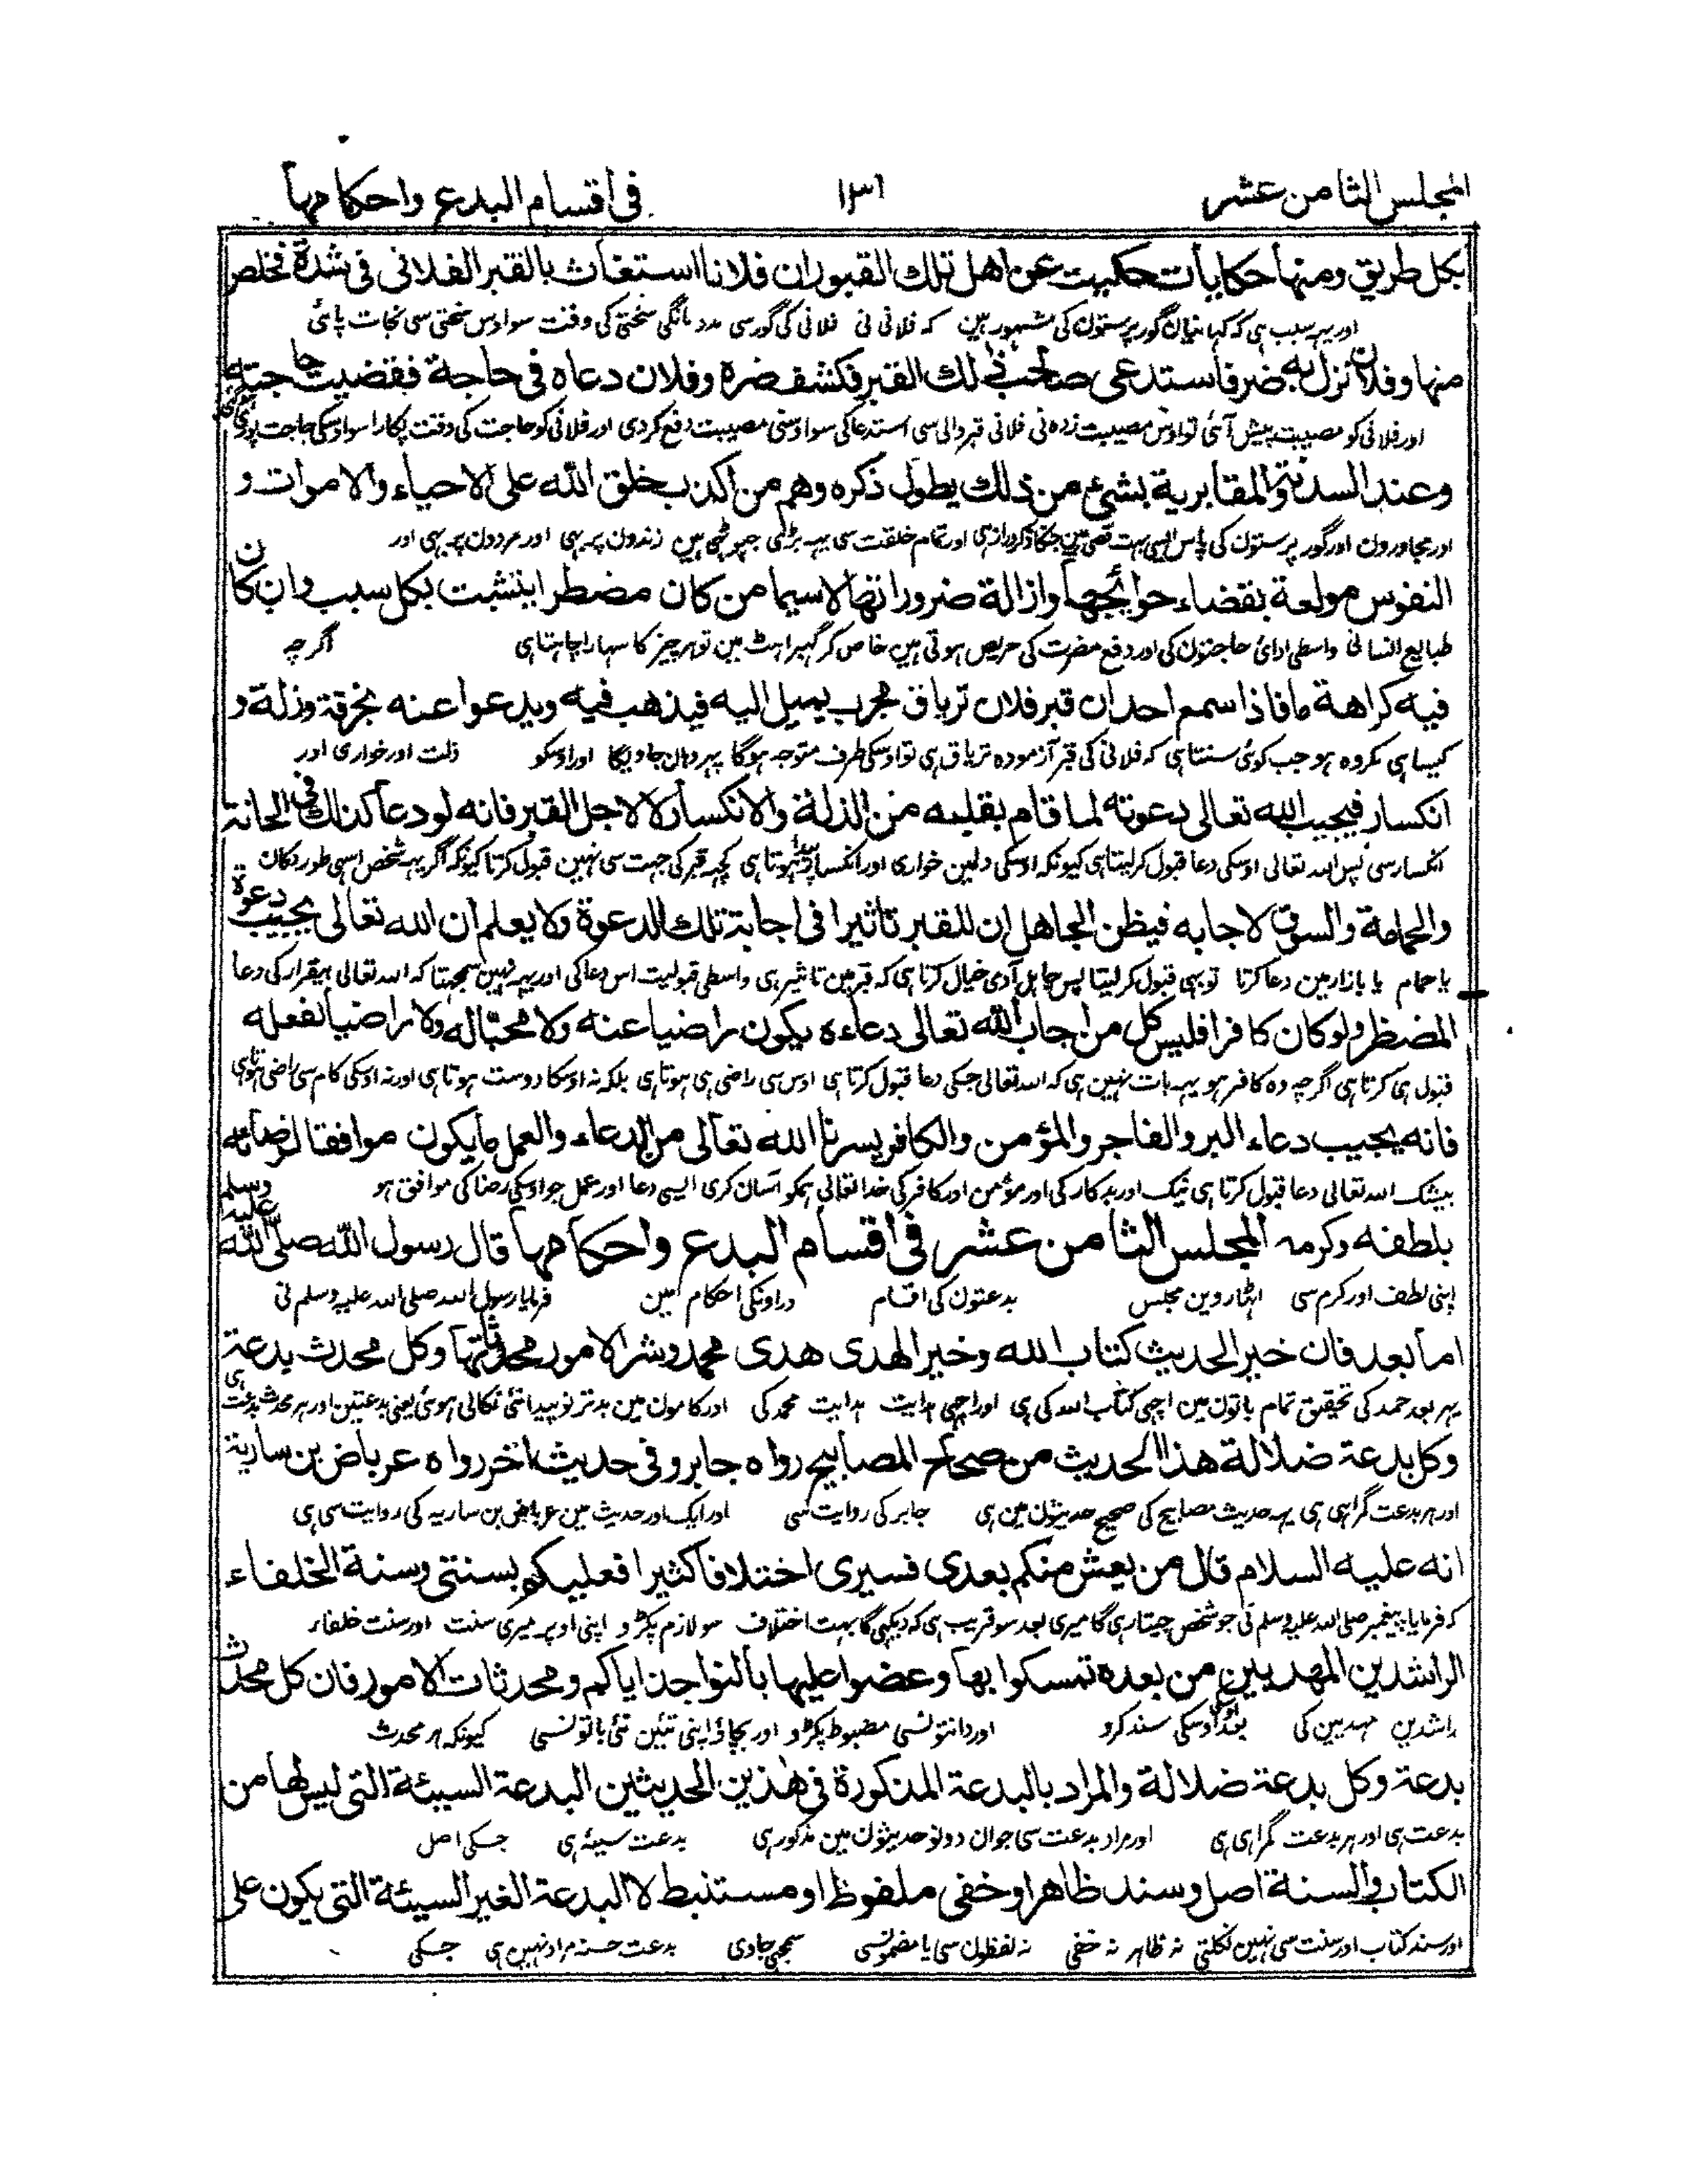 المجلس الثامن عشر ۱۳۱ فى اقسام البدع واحكامها
بكل طريق ومنها حكايات حكيت عن اهل تلك القبور ان فلانا استغاث بالقبر الفلانى فى شدة فخلص
اور یہہ سبب ہی کہ کہانیان گور پرستون کی مشہور ہین کہ فلانی نی فلانی کی گور سی مدد مانگی سختی کی وقت سو اوس سختی سی نجات پائی
منها وفلان نزل به ضر فاستدعى صاحب ذلك القبر فكشف ضره وفلان دعاه فى حاجة فقضيت حاجته
اور فلانی کو مصیبت پیش آئی تو اوس مصیبت زدہ نی فلانی قبر والی سی استدعا کی سو اوسنی مصیبت دفع کر دی اور فلانی کو حاجت کی وقت پکارا سو اوسکی حاجت پوری
وعند السدنة والمقابرية بشئ من ذلك يطول ذكره وهم من اكذب خلق الله على الاحياء والاموات و
اور مجاورون اور گور پرستون کی پاس ایسی بہت قصی ہین جنکا ذکر دراز ہی اور تمام خلقت سی یہہ بڑی جہوٹی ہین زندون پر بہی اور مردون پر بہی اور
النفوس مولعة بقضاء حوائجها وازالة ضروراتها لاسيما من كان مضطرا يتشبث بكل سبب وان كان
طبایع انسانی واسطی ادائی حاجتون کی اور دفع مضرت کی حریص ہوتی ہین خاص کر گہبراہٹ مین تو ہر چیز کا سہارا چاہتا ہی اگرچہ
فيه كراهة ما فاذا سمع احد ان قبر فلان ترياق مجرب يميل اليه فيذهب فيه ويدعوا عنه بحرقة وذلة و
کیسا ہی مکروہ ہو جب کوئی سنتا ہی کہ فلانی کی قبر آزمودہ تریاق ہی تو اوسکی طرف متوجہ ہوگا پہر وہان جاویگا اور اوسکو ذلت اور خواری اور
انكسار فيجيب الله تعالى دعوته لما قام بقلبه من الذلة والانكسار لا لاجل القبر فانه لو دعا كذلك فى الحانة
انکسار سی پس اللہ تعالی اوسکی دعا قبول کرلیتا ہی کیونکہ اوسکی دلمین خواری اور انکسار پیدا ہوتا ہی کچہ قبر کی جہت سی نہین قبول کرتا کیونکہ اگر یہہ شخص اسی طور دکان
والحمامة والسوق لاجابه فيظن الجاهل ان للقبر تاثيرا فى اجابة تلك الدعوة ولا يعلم ان الله تعالى يجيب دعوة
یا حمام یا بازار مین دعا کرتا تو بہی قبول کرلیتا پس جاہل آدمی خیال کرتا ہی کہ قبر مین تاثیر ہی واسطی قبولیت اس دعا کی اور یہہ نہین سمجہتا کہ اللہ تعالی بیقرار کی دعا
المضطر ولو كان كافرا فليس كل من اجاب الله تعالى دعاءه يكون راضيا عنه ولا محبا له ولا راضيا بفعله
قبول ہی کرتا ہی اگرچہ وہ کافر ہو یہہ بات نہین ہی کہ اللہ تعالی جسکی دعا قبول کرتا ہی اوس سی راضی ہی ہوتا ہی بلکہ نہ اوسکا دوست ہوتا ہی اور نہ اوسکی کام سی راضی ہوتا ہی
فانه يجيب دعاء البر والفاجر والمؤمن والكافر يسرنا الله تعالى من الدعاء والعمل ما يكون موافقا لرضائه
بیشک اللہ تعالی دعا قبول کرتا ہی نیک اور بدکار کی اور مؤمن اور کافر کی خدا تعالی ہمکو آسان کری ایسی دعا اور عمل جو اوسکی رضا کی موافق ہو
بلطفه وكرمه المجلس الثامن عشر فى اقسام البدع واحكامها قال رسول الله صلى الله عليه وسلم
اپنی لطف اور کرم سی اٹہارہوین مجلس بدعتون کی اقسام اور اونکی احکام مین فرمایا رسول اللہ صلی اللہ علیہ وسلم نی
اما بعد فان خير الحديث كتاب الله وخير الهدى هدى محمد وشر الامور محدثاتها وكل محدث بدعة
پہر بعد حمد کی تحقیق تمام باتون مین اچہی کتاب اللہ کی ہی اور اچہی ہدایت ہدایت محمد کی اور کامون مین بدتر نو پیدا نئی نکالی ہوئی یعنی بدعتین اور ہر محدث بدعت ہی
وكل بدعة ضلالة هذا الحديث من صحاح المصابيح رواه جابر وفى حديث اخر رواه عرباض بن سارية
اور ہر بدعت گمراہی ہی یہہ حدیث مصابیح کی صحیح حدیثون مین ہی جابر کی روایت سی اور ایک اور حدیث مین عرباض بن ساریہ کی روایت سی ہی
انه عليه السلام قال من يعش منكم بعدى فسيرى اختلافا كثيرا فعليكم بسنتى وسنة الخلفاء
کہ فرمایا پیغمبر صلی اللہ علیہ وسلم نی جو شخص جیتا رہی گا میری بعد سو قریب ہی کہ دیکہی گا بہت اختلاف سو لازم پکڑو اپنی اوپر میری سنت اور سنت خلفاء
الراشدين المهديين من بعده تمسكوا بها وعضوا عليها بالنواجذ اياكم ومحدثات الامور فان كل محدث
راشدین مہدیین کی بعد اوسکی سند کرو اور دانتونسی مضبوط پکڑو اور بچاؤ اپنی تئین نئی باتونسی کیونکہ ہر محدث
بدعة وكل بدعة ضلالة والمراد بالبدعة المذكورة فى هذين الحديثين البدعة السيئة التى ليس لها من
بدعت ہی اور ہر بدعت گمراہی ہی اور مراد بدعت سی جو ان دونو حدیثون مین مذکور ہی بدعت سیئہ ہی جسکی اصل
الكتاب والسنة اصل وسند ظاهر او خفى ملفوظ او مستنبط لا البدعة الغير السيئة التى يكون على
اور سند کتاب اور سنت سی نہین نکلتی نہ ظاہر نہ خفی نہ لفظون سی یا مضمونسی سمجہی جاوی بدعت حسنہ مراد نہین ہی جسکی